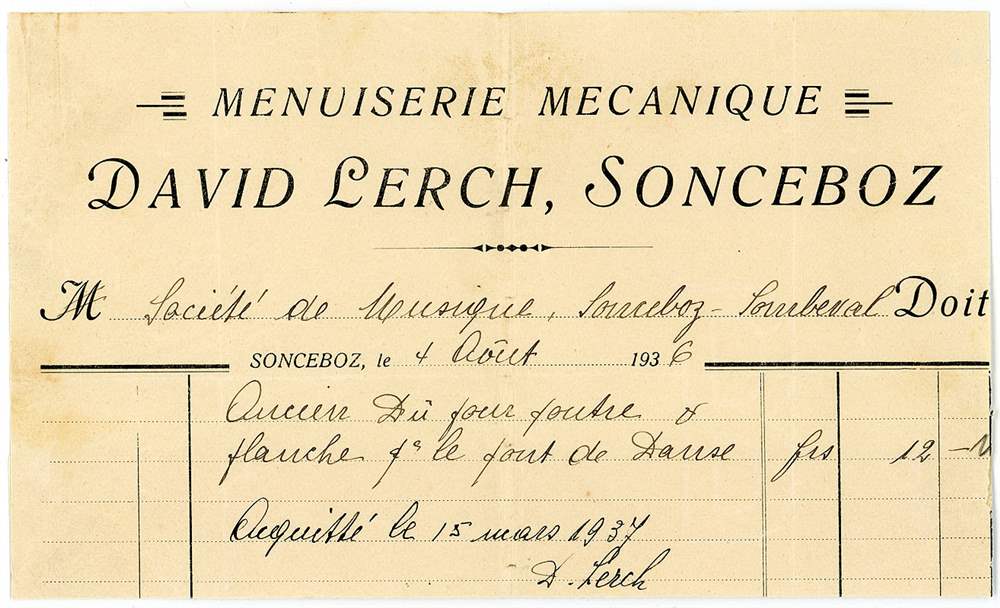 MENUISERIE MECANIQUE
DAVID LERCH, SONCEBOZ
M Société de Musique, Sonceboz-Sombeval Doit
SONCEBOZ, le 4 Août 1936
Ancien Dû pour poutre &
planche pr le pont de Danse frs 12 –
Acquitté le 15 mars 1937
D. Lerch